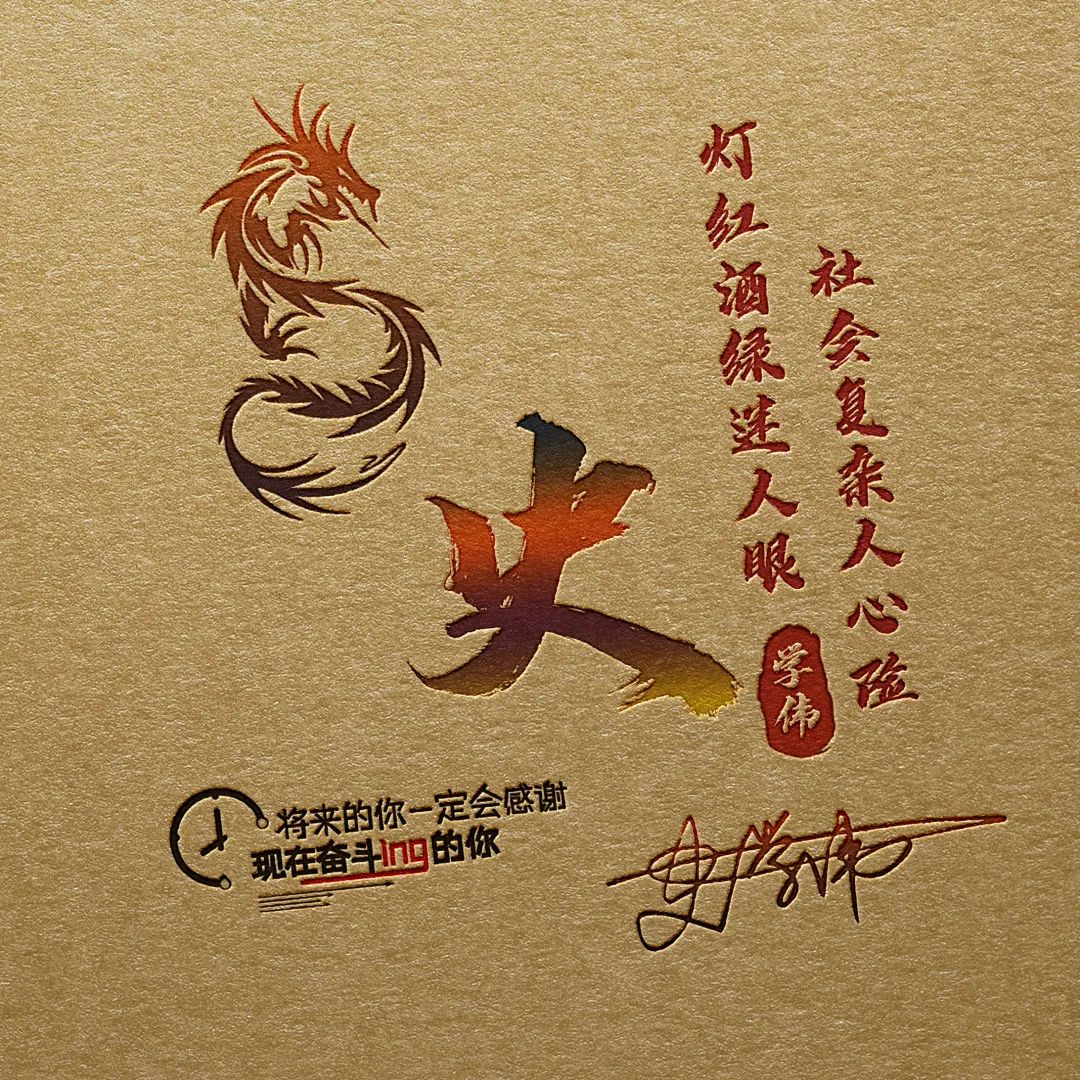 灯红酒绿迷人眼
社会复杂人心险
史
学伟
将来的你一定会感谢
现在奋斗ing的你